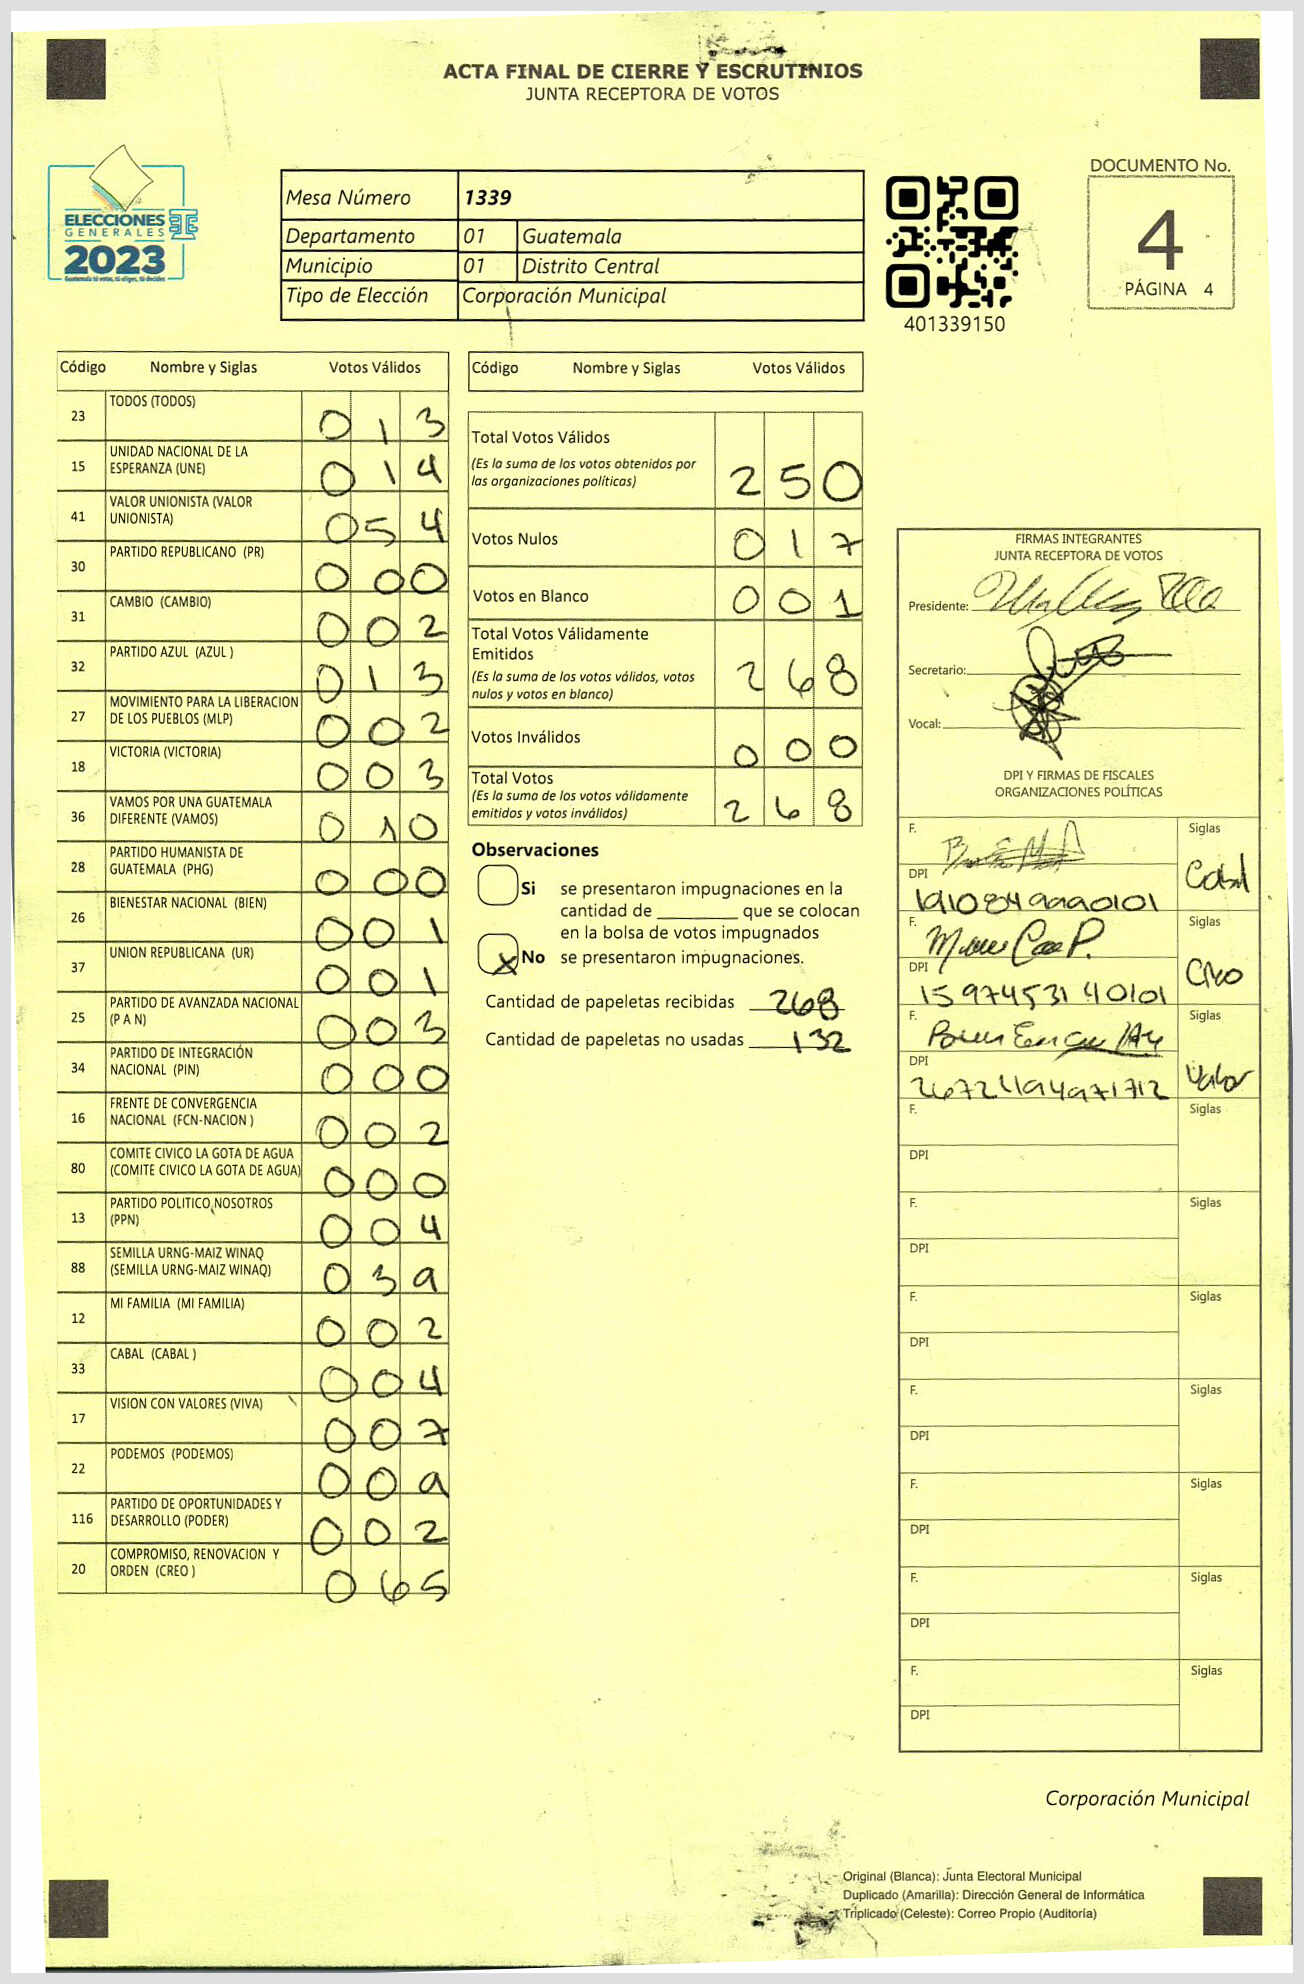 ACTA FINAL DE CIERRE Y ESCRUTINIOS
JUNTA RECEPTORA DE VOTOS
ELECCIONES
GENERALES
2023
Guatemala tú votas, tú eliges, tú decides
Mesa Número 1339
Departamento 01 Guatemala
Municipio 01 Distrito Central
Tipo de Elección Corporación Municipal
401339150
DOCUMENTO No.
4
PÁGINA 4
Código Nombre y Siglas Votos Válidos
23 TODOS (TODOS) 0 1 3
15 UNIDAD NACIONAL DE LA
ESPERANZA (UNE) 0 1 4
41 VALOR UNIONISTA (VALOR
UNIONISTA) 0 5 4
30 PARTIDO REPUBLICANO (PR) 0 0 0
31 CAMBIO (CAMBIO) 0 0 2
32 PARTIDO AZUL (AZUL ) 0 1 3
27 MOVIMIENTO PARA LA LIBERACION
DE LOS PUEBLOS (MLP) 0 0 2
18 VICTORIA (VICTORIA) 0 0 3
36 VAMOS POR UNA GUATEMALA
DIFERENTE (VAMOS) 0 1 0
28 PARTIDO HUMANISTA DE
GUATEMALA (PHG) 0 0 0
26 BIENESTAR NACIONAL (BIEN) 0 0 1
37 UNION REPUBLICANA (UR) 0 0 1
25 PARTIDO DE AVANZADA NACIONAL
(P A N) 0 0 3
34 PARTIDO DE INTEGRACIÓN
NACIONAL (PIN) 0 0 0
16 FRENTE DE CONVERGENCIA
NACIONAL (FCN-NACION ) 0 0 2
80 COMITE CIVICO LA GOTA DE AGUA
(COMITE CIVICO LA GOTA DE AGUA) 0 0 0
13 PARTIDO POLITICO NOSOTROS
(PPN) 0 0 4
88 SEMILLA URNG-MAIZ WINAQ
(SEMILLA URNG-MAIZ WINAQ) 0 3 9
12 MI FAMILIA (MI FAMILIA) 0 0 2
33 CABAL (CABAL ) 0 0 4
17 VISION CON VALORES (VIVA) 0 0 7
22 PODEMOS (PODEMOS) 0 0 9
116 PARTIDO DE OPORTUNIDADES Y
DESARROLLO (PODER) 0 0 2
20 COMPROMISO, RENOVACION Y
ORDEN (CREO ) 0 6 5
Código Nombre y Siglas Votos Válidos
Total Votos Válidos
(Es la suma de los votos obtenidos por
las organizaciones políticas) 2 5 0
Votos Nulos 0 1 7
Votos en Blanco 0 0 1
Total Votos Válidamente
Emitidos
(Es la suma de los votos válidos, votos
nulos y votos en blanco) 2 6 8
Votos Inválidos 0 0 0
Total Votos
(Es la suma de los votos válidamente
emitidos y votos inválidos) 2 6 8
Observaciones
Si se presentaron impugnaciones en la
cantidad de ________ que se colocan
en la bolsa de votos impugnados
X No se presentaron impugnaciones.
Cantidad de papeletas recibidas 268
Cantidad de papeletas no usadas 132
FIRMAS INTEGRANTES
JUNTA RECEPTORA DE VOTOS
Presidente:
Secretario:
Vocal:
DPI Y FIRMAS DE FISCALES
ORGANIZACIONES POLÍTICAS
F. Siglas
Cabal
DPI
1910849990101
F. Siglas
Creo
DPI
1597453140101
F. Siglas
Valor
DPI
F. Siglas
DPI
F. Siglas
DPI
F. Siglas
DPI
F. Siglas
DPI
F. Siglas
DPI
F. Siglas
DPI
F. Siglas
DPI
Corporación Municipal
Original (Blanca): Junta Electoral Municipal
Duplicado (Amarilla): Dirección General de Informática
Triplicado (Celeste): Correo Propio (Auditoría)